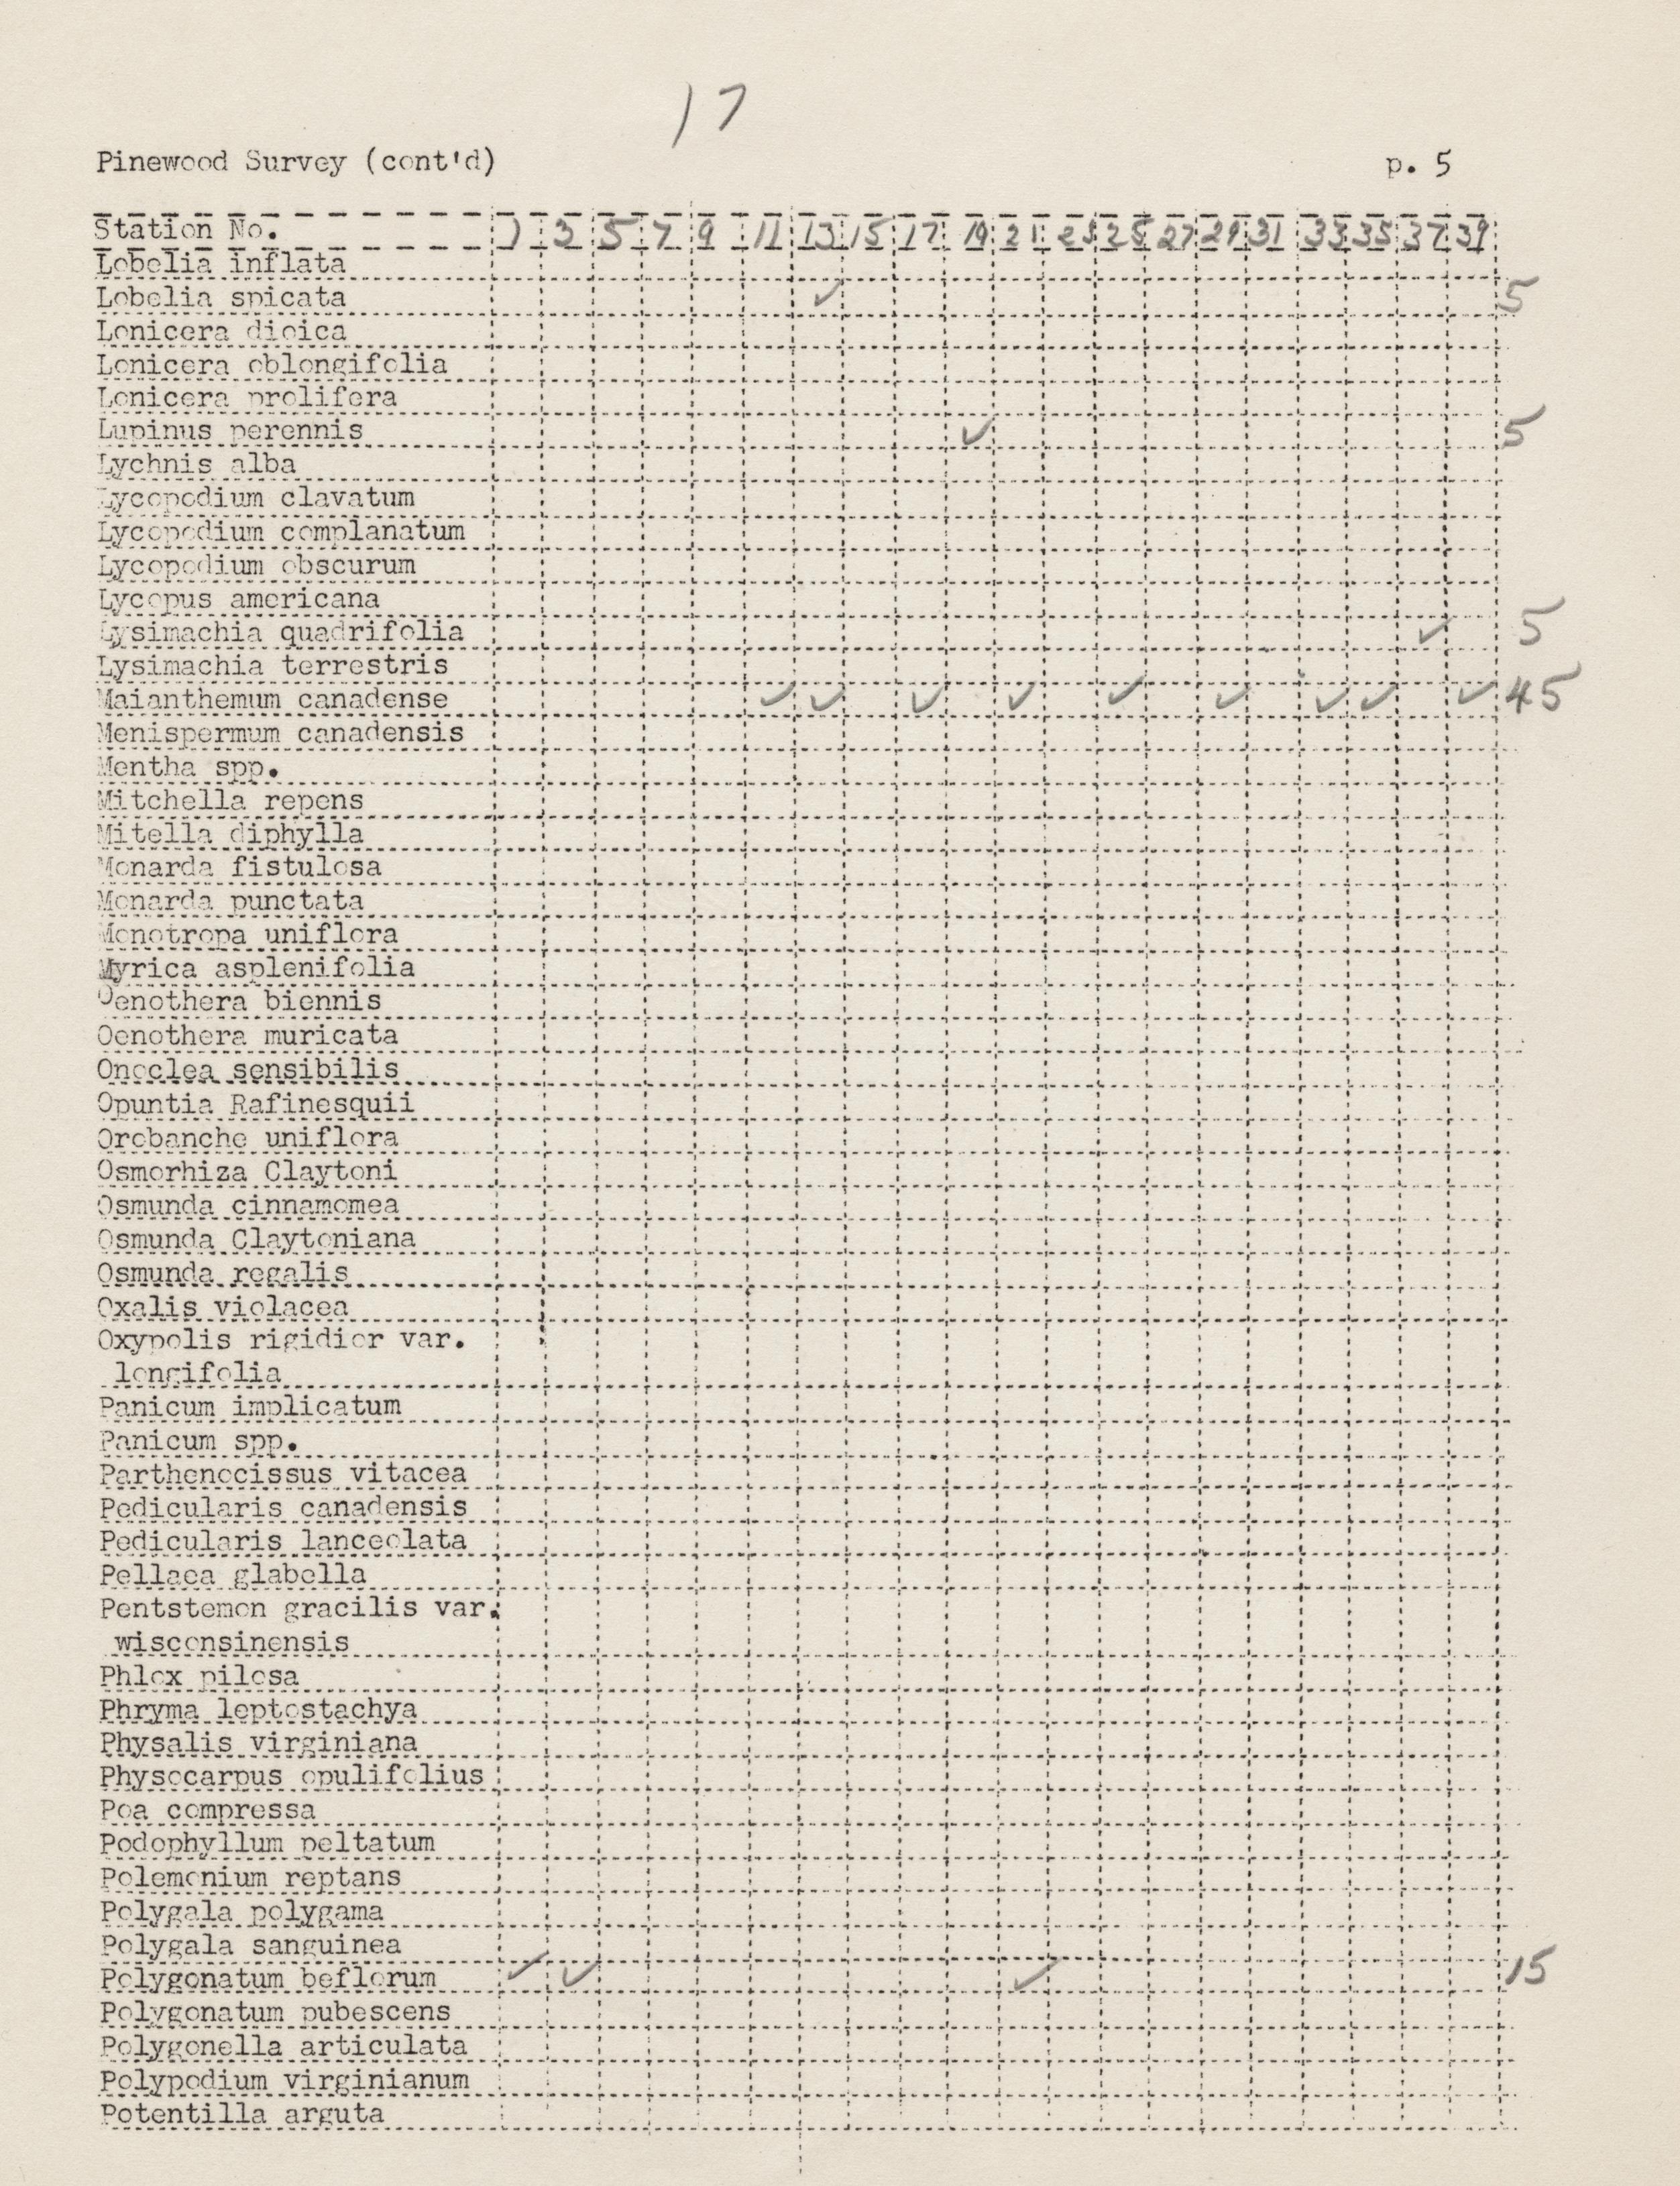 17
Pinewood Survey (cont'd) p. 5
Station No. 1 3 5 7 9 11 13 15 17 19 21 23 25 27 29 31 33 35 37 39
Lobelia inflata
Lobelia spicata ✓ 5
Lonicera dioica
Lonicera oblongifolia
Lonicera prolifera
Lupinus perennis ✓ 5
Lychnis alba
Lycopodium clavatum
Lycopodium complanatum
Lycopodium obscurum
Lycopus americana
Lysimachia quadrifolia ✓ 5
Lysimachia terrestris
Maianthemum canadense ✓ ✓ ✓ ✓ ✓ ✓ ✓ ✓ ✓ 45
Menispermum canadensis
Mentha spp.
Mitchella repens
Mitella diphylla
Monarda fistulosa
Monarda punctata
Monotropa uniflora
Myrica asplenifolia
Oenothera biennis
Oenothera muricata
Onoclea sensibilis
Opuntia Rafinesquii
Orobanche uniflora
Osmorhiza Claytoni
Osmunda cinnamomea
Osmunda Claytoniana
Osmunda regalis
Oxalis violacea
Oxypolis rigidior var.
longifolia
Panicum implicatum
Panicum spp.
Parthenocissus vitacea
Pedicularis canadensis
Pedicularis lanceolata
Pellaea glabella
Pentstemon gracilis var.
wisconsinensis
Phlox pilosa
Phryma leptostachya
Physalis virginiana
Physocarpus opulifolius
Poa compressa
Podophyllum peltatum
Polemonium reptans
Polygala polygama
Polygala sanguinea
Polygonatum beflorum ✓ ✓ ✓ 15
Polygonatum pubescens
Polygonella articulata
Polypodium virginianum
Potentilla arguta